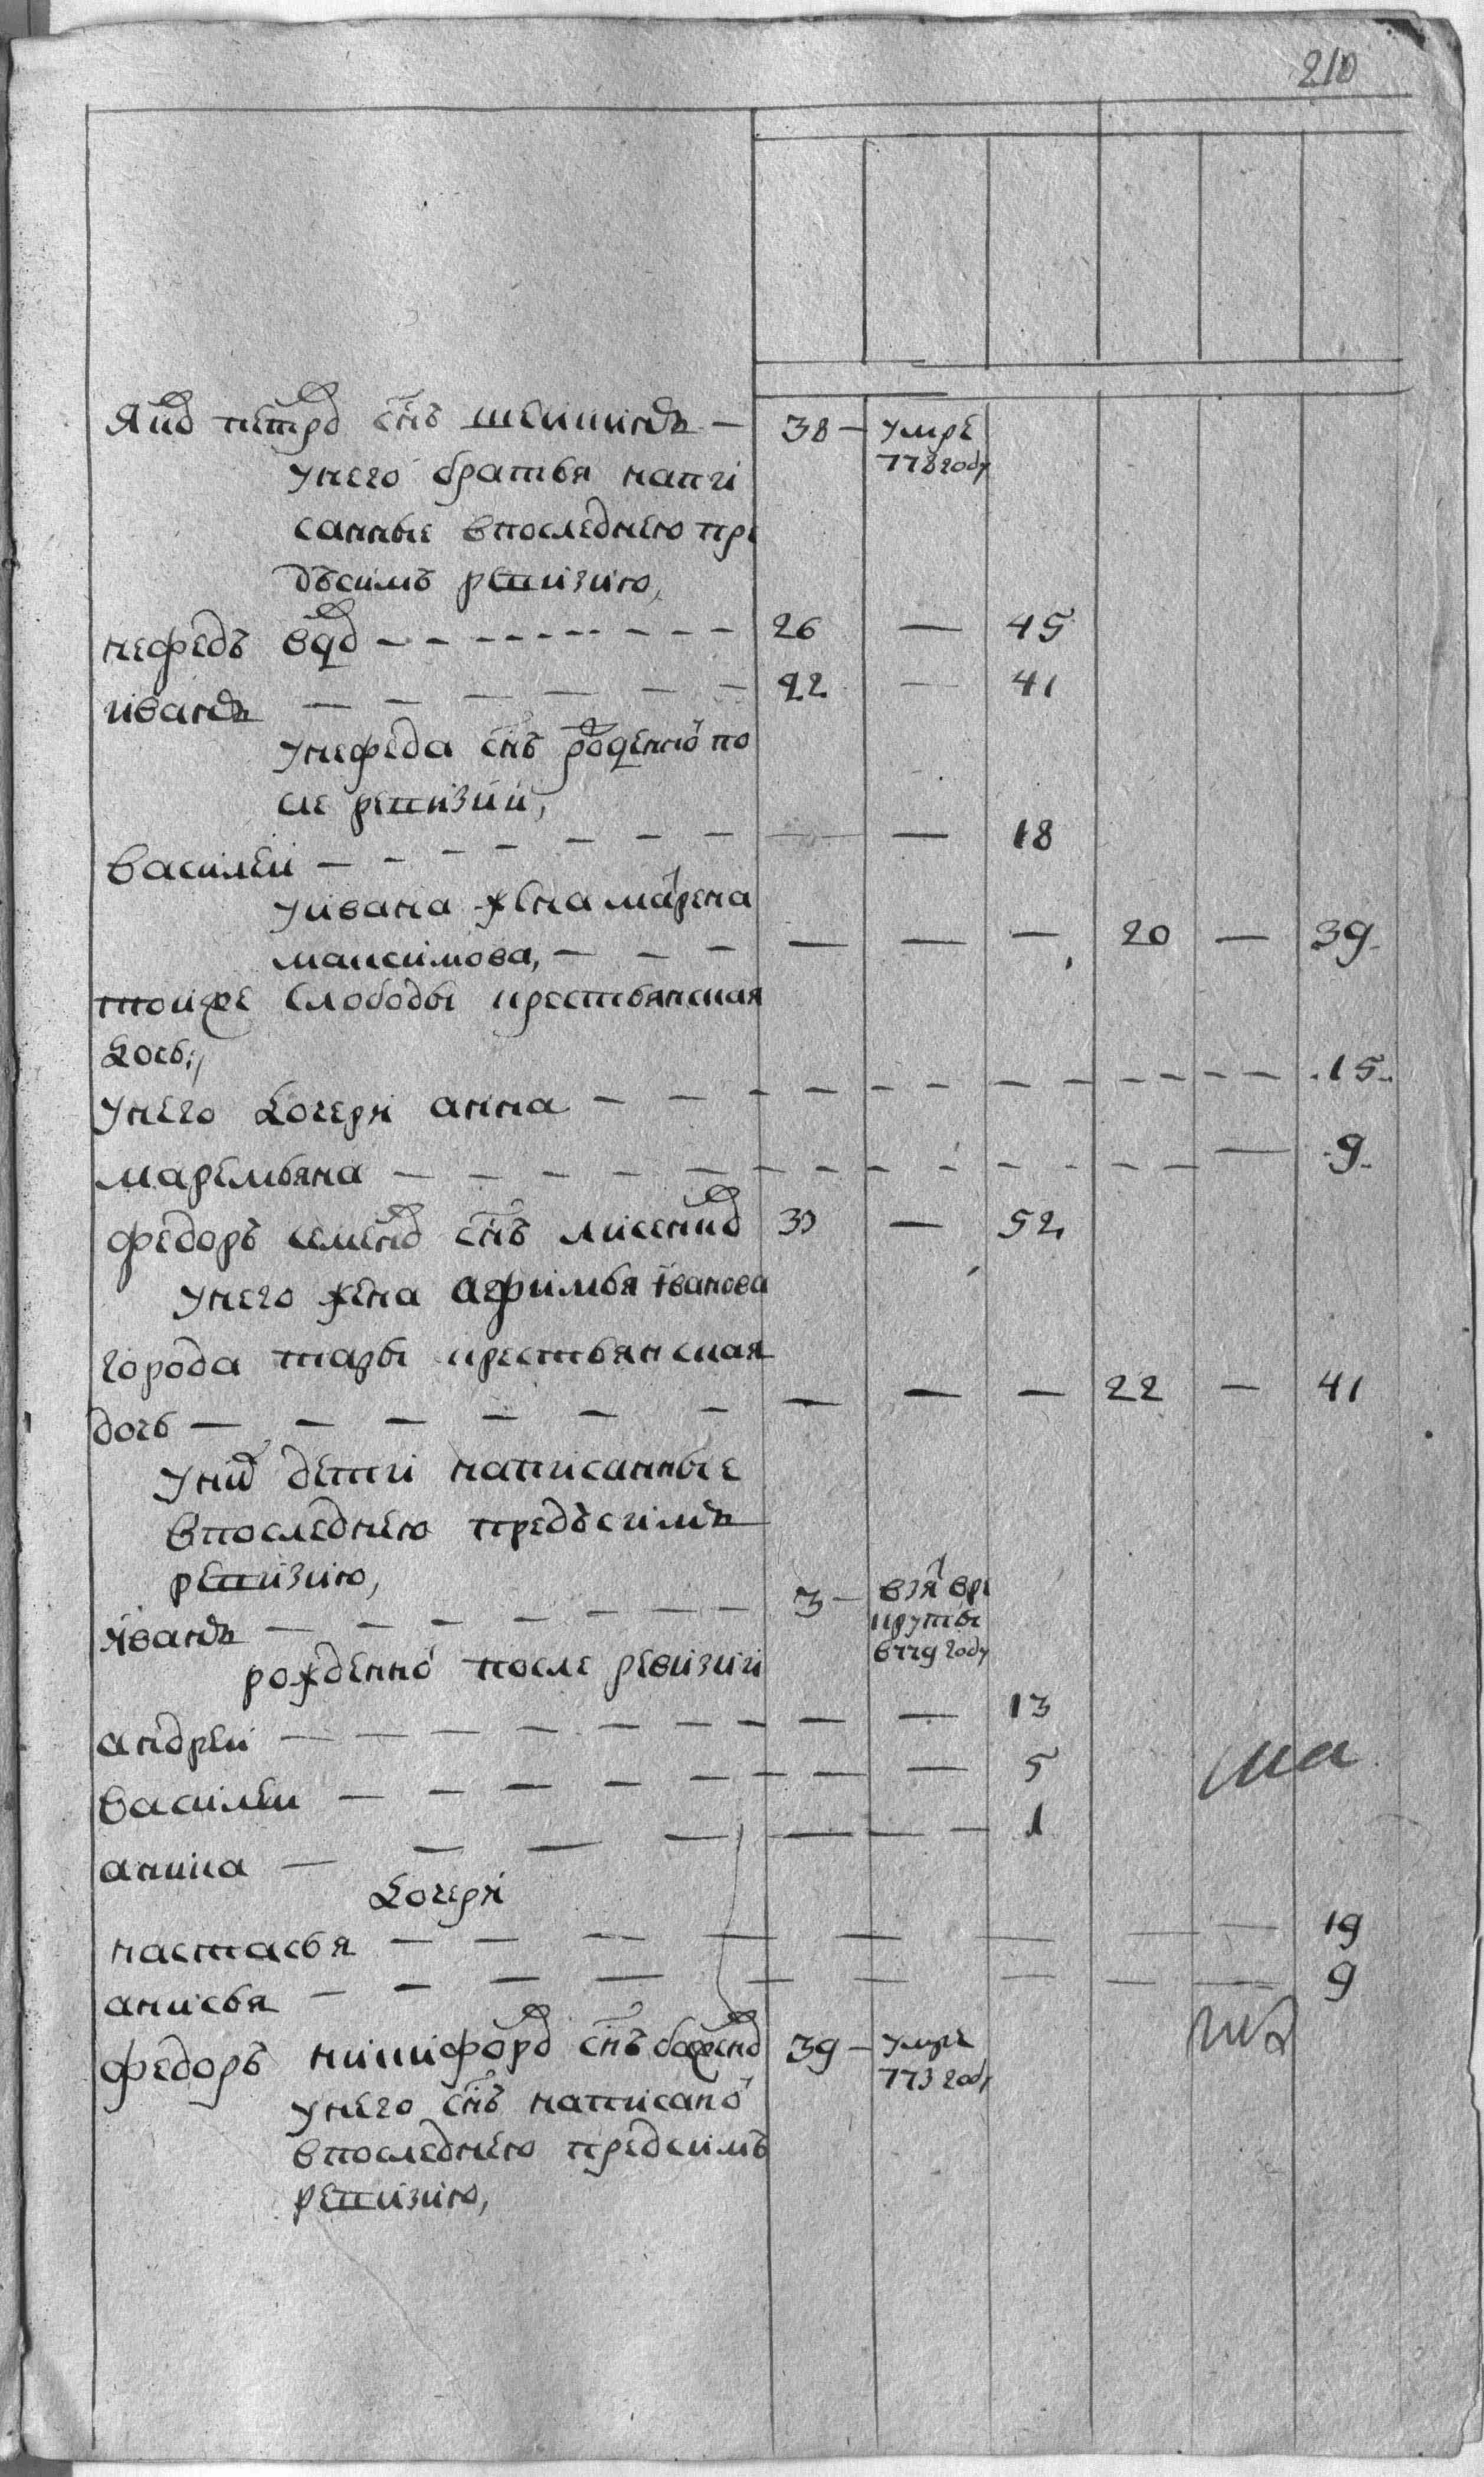 210
Яко петро снъ шенкинъ — 38 — умре
778 году
унего братья напи
санные впоследнею пре
дъсимъ ревизию,
нефедъ вдо — 26 — 45
иванъ — 22 — 41
унефеда снъ рожденно по
сле ревизии,
василеи — — — 18
уивана жена марена
максимова, — — — — 20 — 39
тоиже слободы крестьянская
дочь,
унего дочери анна — — — 15
маремьяна — — — 9
федоръ семено снъ лисенко 33 — 52
унего жена афимья iванова
города тары крестьянская
дочь — — — — 22 — 41
уни дети написанные
впоследнею предъсимъ
ревизию,
иванъ — 3 — взя вре
круты
в779 году
рожденно после ревизии
андреи — — — 13
василеи — — — 5
аника — — — 1
дочери
настасья — — — 19
анисья — — — 9
федоръ никифоро снъ баженo 39 — умре
773 году
унего снъ написано
впоследнею предсимъ
ревизию,